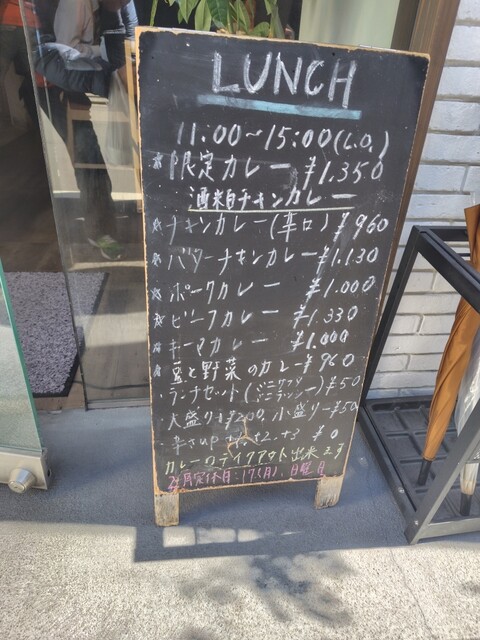 LUNCH
11:00~15:00(L.O.)
☆限定カレー ¥1.350
酒粕チキンカレー
☆チキンカレー(辛口) ¥960
☆バターチキンカレー ¥1.130
☆ポークカレー ¥1.000
☆ビーフカレー ¥1.330
☆キーマカレー ¥1.000
☆豆と野菜のカレー ¥960
・ランチセット(ミニサラダ ミニラッシー) ¥50
大盛り+¥200、小盛り-¥50
辛さup +1、+2、+3 ¥0
カレーのテイクアウト出来〼
定休日:17(月)、日曜日